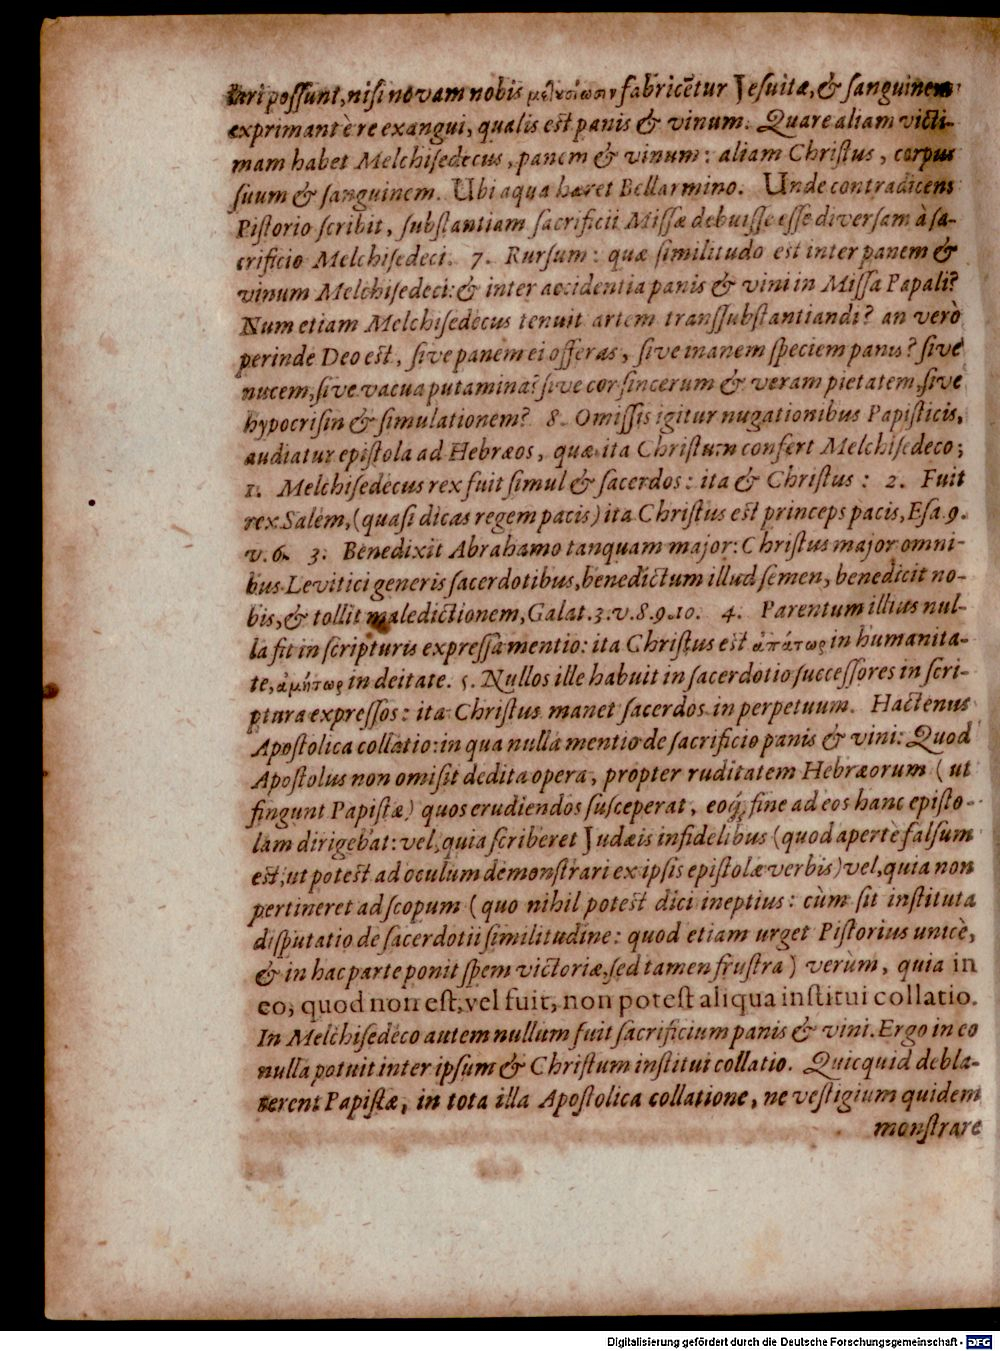 tari possunt, nisi novam nobis fabricētur Jesuitæ, & sanguinem
exprimant è re exangui, qualis est panis & vinum. Quare aliam victi-
mam habet Melchisedecus, panem & vinum: aliam Christus, corpus
suum & sanguinem. Ubi aqua hæret Bellarmino. Unde contradicens
Pistorio scribit, substantiam sacrificii Missæ debuisse esse diversam à sa-
crificio Melchisedeci. 7. Rursum: quæ similitudo est inter panem &
vinum Melchisedeci: & inter accidentia panis & vini in Missa Papali?
Num etiam Melchisedecus tenuit artem transsubstantiandi? an verò
perinde Deo est, sive panem ei offeras, sive inanem speciem panis? sive
nucem, sive vacua putamina? sive cor sincerum & veram pietatem, sive
hypocrisin & simulationem? 8. Omissis igitur nugationibus Papisticis,
audiatur epistola ad Hebræos, quæ ita Christum confert Melchisedeco;
1. Melchisedecus rex fuit simul & sacerdos: ita & Christus: 2. Fuit
rex Salem, (quasi dicas regem pacis) ita Christus est princeps pacis, Esa. 9.
v. 6. 3. Benedixit Abrahamo tanquam major: Christus major omni-
bus Levitici generis sacerdotibus, benedictum illud semen, benedicit no-
bis, & tollit maledictionem, Galat. 3. v. 8. 9. 10. 4. Parentum illius nul-
la fit in scripturis expressa mentio: ita Christus est ἀπάτωρ in humanita-
te, ἀμήτωρ in deitate. 5. Nullos ille habuit in sacerdotio successores in scri-
ptura expressos: ita Christus manet sacerdos in perpetuum. Hactenus
Apostolica collatio: in qua nulla mentio de sacrificio panis & vini: Quod
Apostolus non omisit dedita opera, propter ruditatem Hebræorum (ut
fingunt Papistæ) quos erudiendos susceperat, eoq́; fine ad eos hanc episto-
lam dirigebat: vel, quia scriberet Judæis infidelibus (quod apertè falsum
est, ut potest ad oculum demonstrari ex ipsis epistolæ verbis) vel, quia non
pertineret ad scopum (quo nihil potest dici ineptius: cùm sit instituta
disputatio de sacerdotii similitudine: quod etiam urget Pistorius unicè,
& in hac parte ponit spem victoriæ, sed tamen frustra) verùm, quia in
eo, quod non est, vel fuit, non potest aliqua institui collatio.
In Melchisedeco autem nullum fuit sacrificium panis & vini. Ergo in eo
nulla potuit inter ipsum & Christum institui collatio. Quicquid debla-
terent Papistæ, in tota illa Apostolica collatione, ne vestigium quidem
monstrare
Digitalisierung gefördert durch die Deutsche Forschungsgemeinschaft - DFG